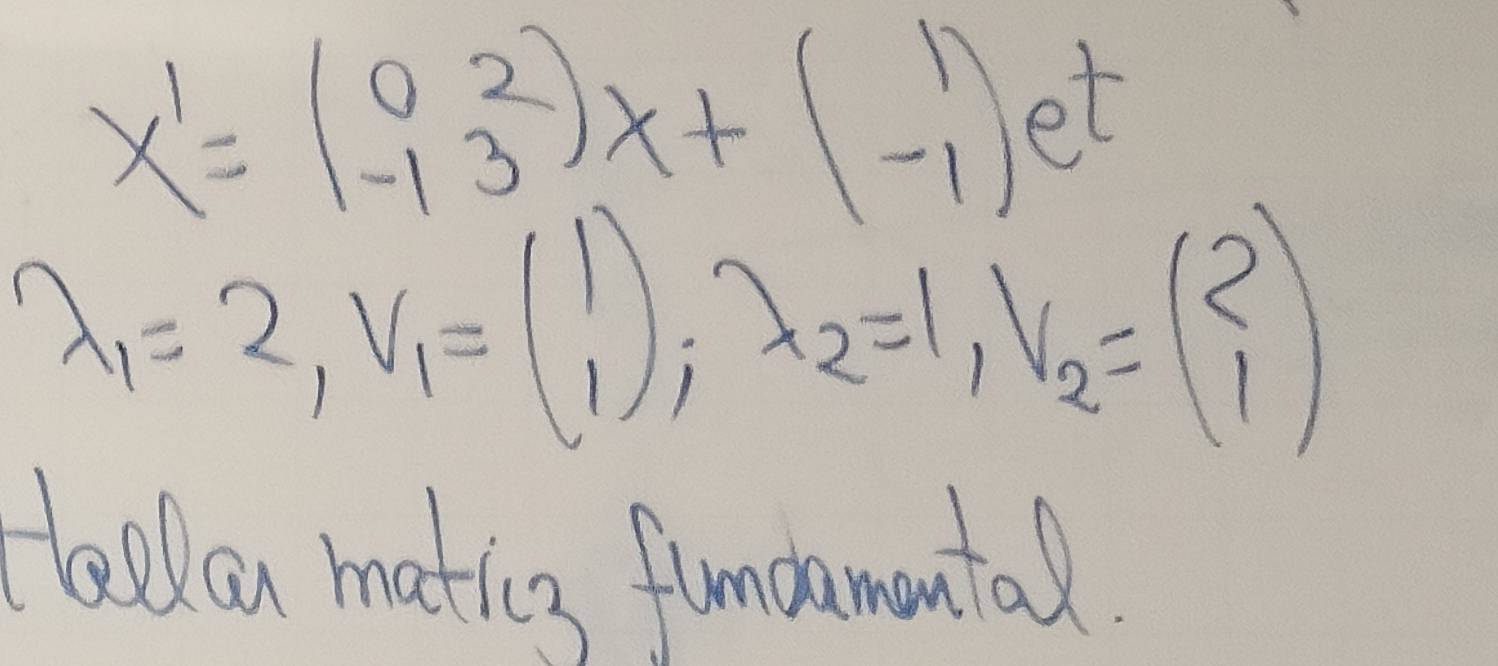 x' = (0 2 -1 3) x + (1 -1) et
λ1 = 2, V1 = (1 1); λ2 = 1, V2 = (2 1)
Hallar matriz fundamental.